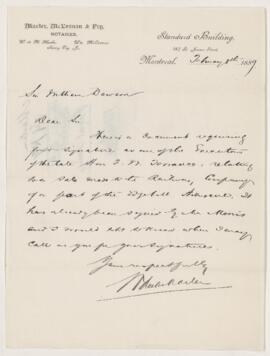 Marler, McLennan & Fry,
NOTARIES.
W. de M. Marler. Wm. McLennan
Henry Fry Jr.
Standard Building,
157 St. James Street
Montreal, February 8th 1889
Sir William Dawson
Dear Sir
I have a document requiring
your signature as one of the Executors
of the late Hon F. W. Torrance, relating
to a sale made to the Railway Company
of a part of the Edgehill Avenue. It
has already been signed by Mr Morris
and I would like to know when I may
call on you for your signature.
Yours respectfully
W de M Marler